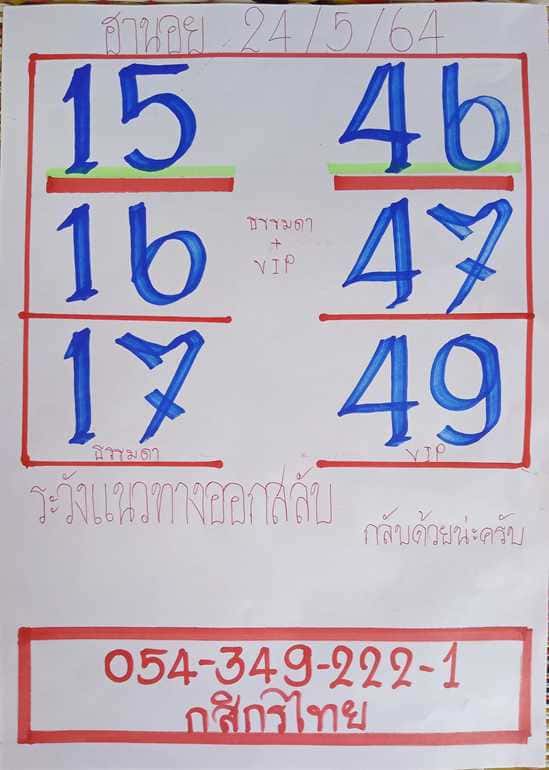 ฮานอย 24/5/64
15 46
ธรรมดา
+
VIP
16 47
17 49
ธรรมดา VIP
ระวังแนวทางออกสลับ
กลับด้วยน่ะครับ
054-349-222-1
กสิกรไทย